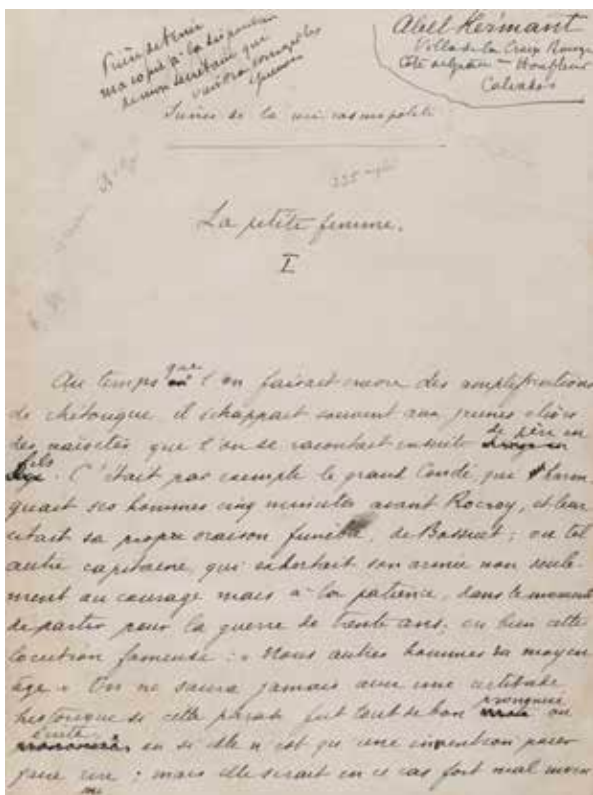 Prière de tenir
ma copie à la disposition
de mon secrétaire qui
viendra corriger les
épreuves
Abel Hermant
Villa de la Croix Rouge
Côte de grâce — Honfleur
Calvados
Suives de la vie cosmopolite
La petite femme.
I
Au temps que l'on faisait encore des amplifications
de rhétorique il échappait souvent aux jeunes élèves
des naïvetés que l'on se racontait ensuite de père en
fils. C'était par exemple le grand Condé qui haran
guait ses hommes cinq minutes avant Rocroy, et leur
citait sa propre oraison funèbre, de Bossuet ; ou tel
autre capitaine, qui exhortait son armée non seule-
ment au courage mais à la patience, dans le moment
de partir pour la guerre de trente ans, ou bien cette
locution fameuse : « Nous autres hommes du moyen
âge » On ne saura jamais avec une certitude
historique si cette phrase fut tout de bon prononcée ou
écrite ou si elle n'est qu'une invention pour
faire rire ; mais elle serait en ce cas fort mal